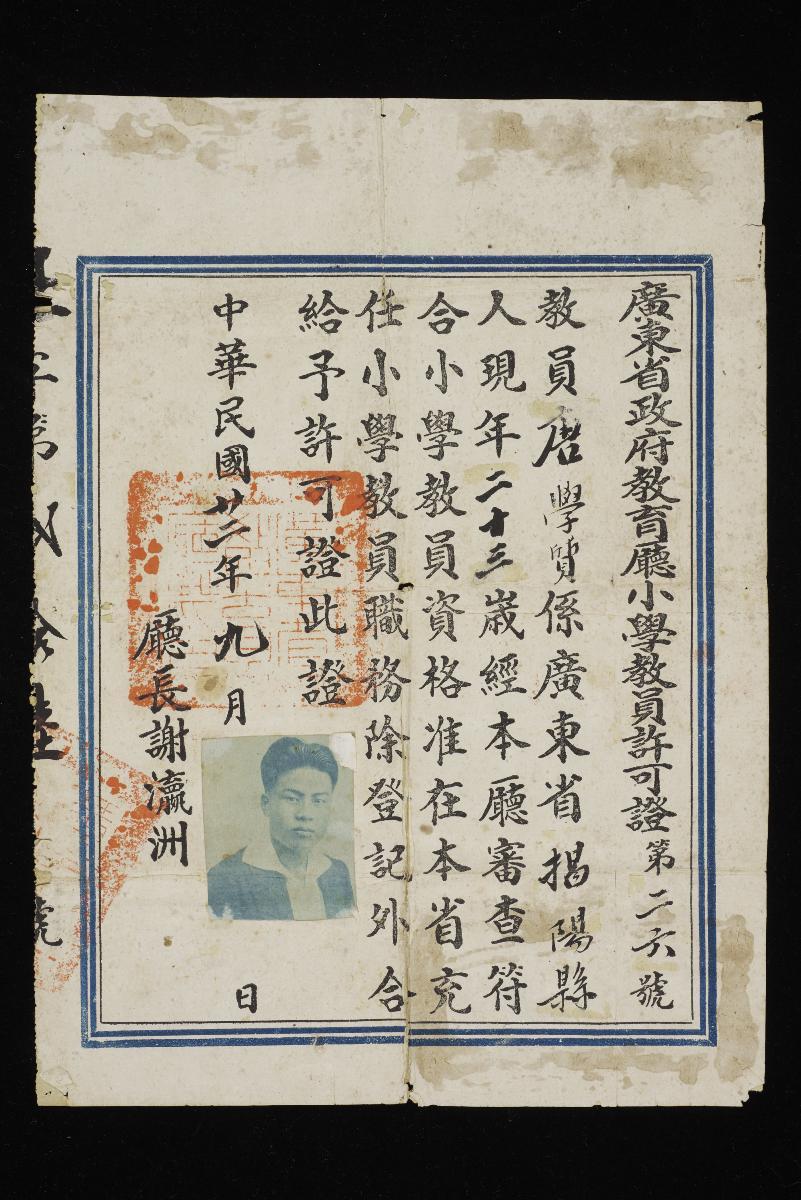 廣東省政府教育廳小學教員許可證第二六號
教員唐學質係廣東省揭陽縣
人現年二十三歲經本廳審查符
合小學教員資格准在本省充
任小學教員職務除登記外合
給予許可證此證
中華民國廿二年九月 日
廳長謝瀛洲
字第 號